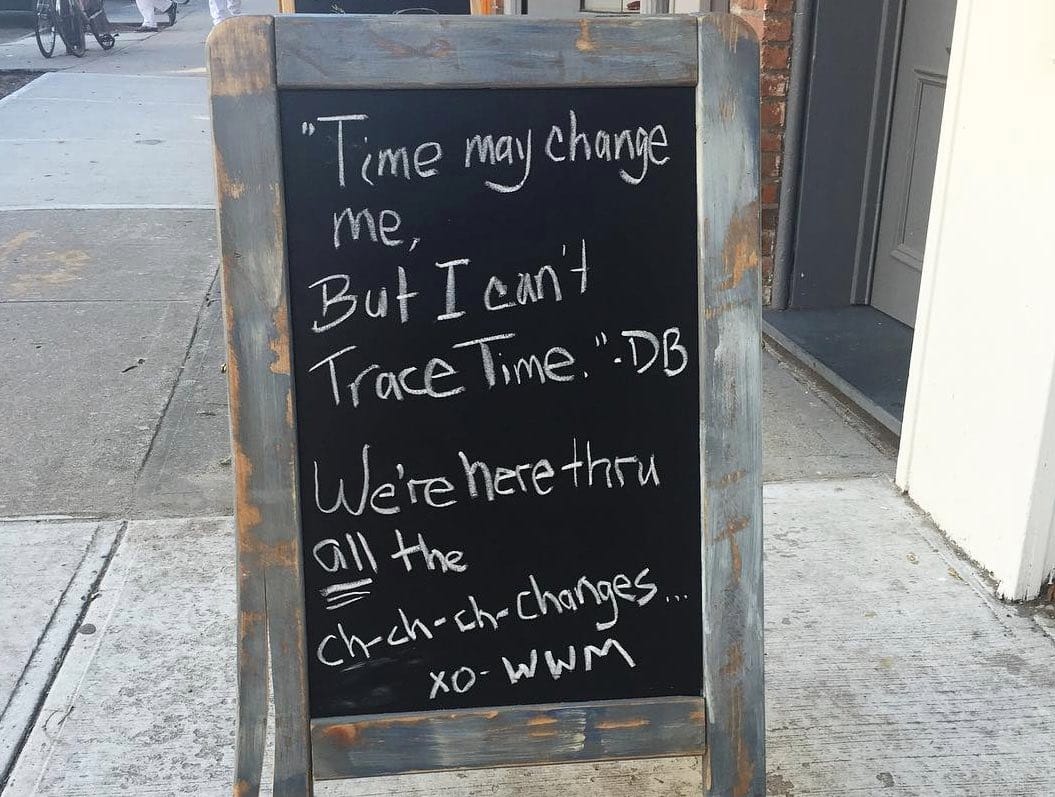 "Time may change
me,
But I can't
Trace Time." -DB
We're here thru
all the
ch-ch-ch-changes...
xo- WWM